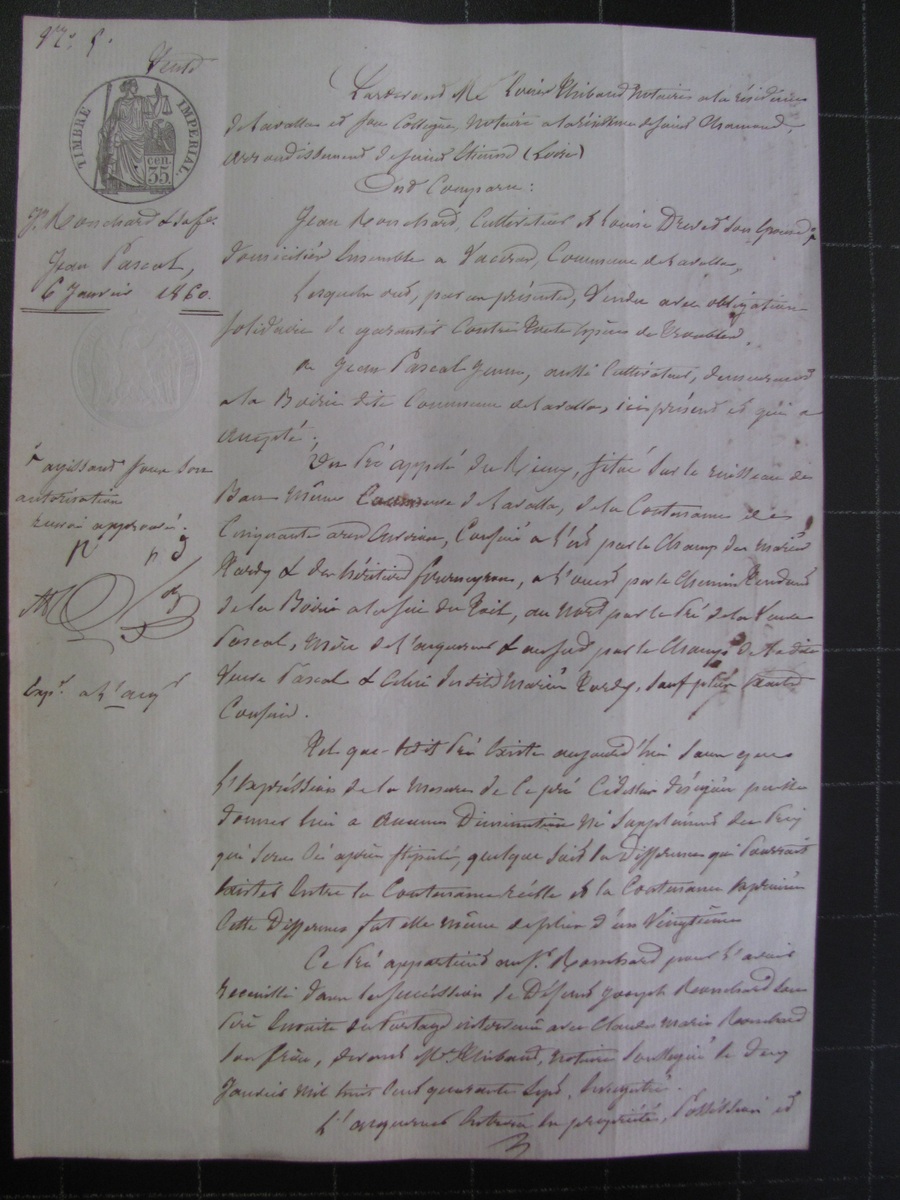 N.° 5.
Vente
TIMBRE IMPERIAL.
35 cen.
Jn Ronchard & sa fe.
Jean Pascal,
6 Janvier 1860.
ayissant sous son
autorisation
renvoi approuvé.
Expn a l'acqr
Par devant Me Louis Thibaud Notaire a la résidence
de Lavalla et son Collègue, Notaire a la résidence de Saint Chamond,
arrondissement de Saint Etienne (Loire)
Ont Comparu:
Jean Ronchard, Cultivateur & Louise Drevet son épouse
domiciliés Ensemble a Commune de Lavalla,
Lesquels ont, par ces présentes, Vendu avec obligation
solidaire de garantir Contre toute espèce de troubles,
a Jean Pascal Jeune, aussi Cultivateur, demeurant
a la Commune de Lavalla, ici présent et qui a
accepté:
Un Pré appelé du situé sur le ruisseau de
Ban même Commune de Lavalla, de la Contenance de
Cinquante ares Environ, Confiné a l'est par le Champ des mariés
Tardy & des héritiers a l'ouest par le Chemin Tendant
de la a la du Toit, au Nord par le Pré de la Veuve
Pascal, mère de l'acquereur & au sud par le Champ de la dite
Veuve Pascal & Celui desdits mariés Tardy, sauf plus
Confins.
Tel que ledit Pré Existe aujourd'hui sans que
l'Expréssion de la Mesure de Ce pré Cidessus désigné puisse
donner lieu a aucune Diminution Ni Supplément du Prix
qui sera Ci après stipulé, quelque soit la Différence qui Pourrait
Exister Entre la Contenance réelle et la Contenance Exprimée
Cette Différence fut elle même de plus d'un Vingtième
Ce Pré appartient au Sr. Ronchard pour l'avoir
recueilli dans la Succéssion de Défunt Joseph Ronchard son
Père Ensuite du Partage intervenu avec Claude Marie Ronchard
son frère, devant Me Thibaud, notaire Soussigné le
Janvier mil huit Cent quarante Sept, Enregistré.
L'acquereur Entrera En propriété, Posséssion et